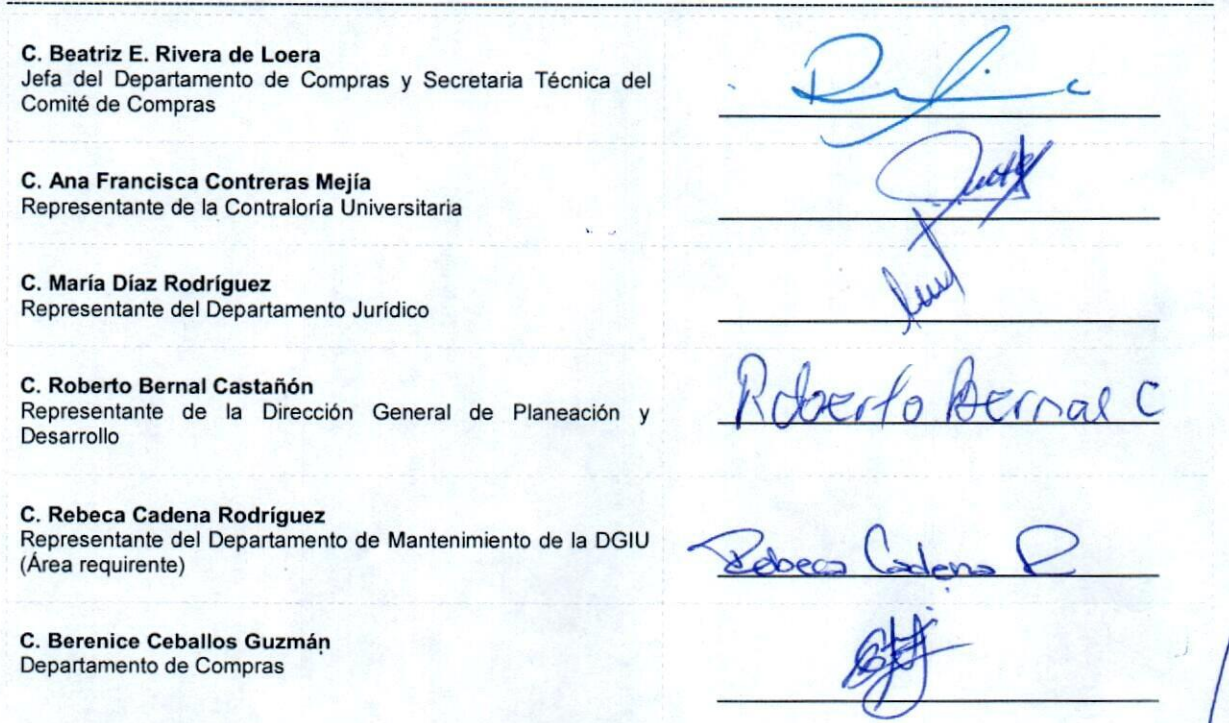 C. Beatriz E. Rivera de Loera
Jefa del Departamento de Compras y Secretaria Técnica del
Comité de Compras
C. Ana Francisca Contreras Mejía
Representante de la Contraloría Universitaria
C. María Díaz Rodríguez
Representante del Departamento Jurídico
C. Roberto Bernal Castañón
Representante de la Dirección General de Planeación y
Desarrollo
Roberto Bernal C
C. Rebeca Cadena Rodríguez
Representante del Departamento de Mantenimiento de la DGIU
(Área requirente)
Rebeca Cadena R
C. Berenice Ceballos Guzmán
Departamento de Compras